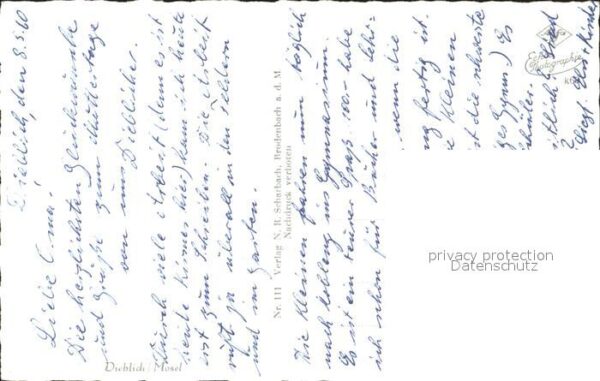 Dieblich, den 8.5.60
Liebe Oma!
Die herzlichsten Glückwünsche
und Grüße zum Muttertage
von uns Dieblicher.
Durch viele Arbeit (denn es ist
heute Kirmes hier) kam ich heute
erst zum Schreiben. Die Arbeit
ruft ja überall in den Feldern
und im Garten.
Dieblich Mosel
Nr. 111 Verlag N. R. Scharbach, Brodenbach a. d. M
Nachdruck verboten
Die Kleinen fahren nun täglich
nach Koblenz ins Gymnasium.
Es ist ein teurer Spaß, so habe
ich schon für Bücher und
wenn die
ng fertig ist.
e Kleinen
st die schwerste
ges Gymn.) Es
chüler.
Photographie
privacy protection
Datenschutz